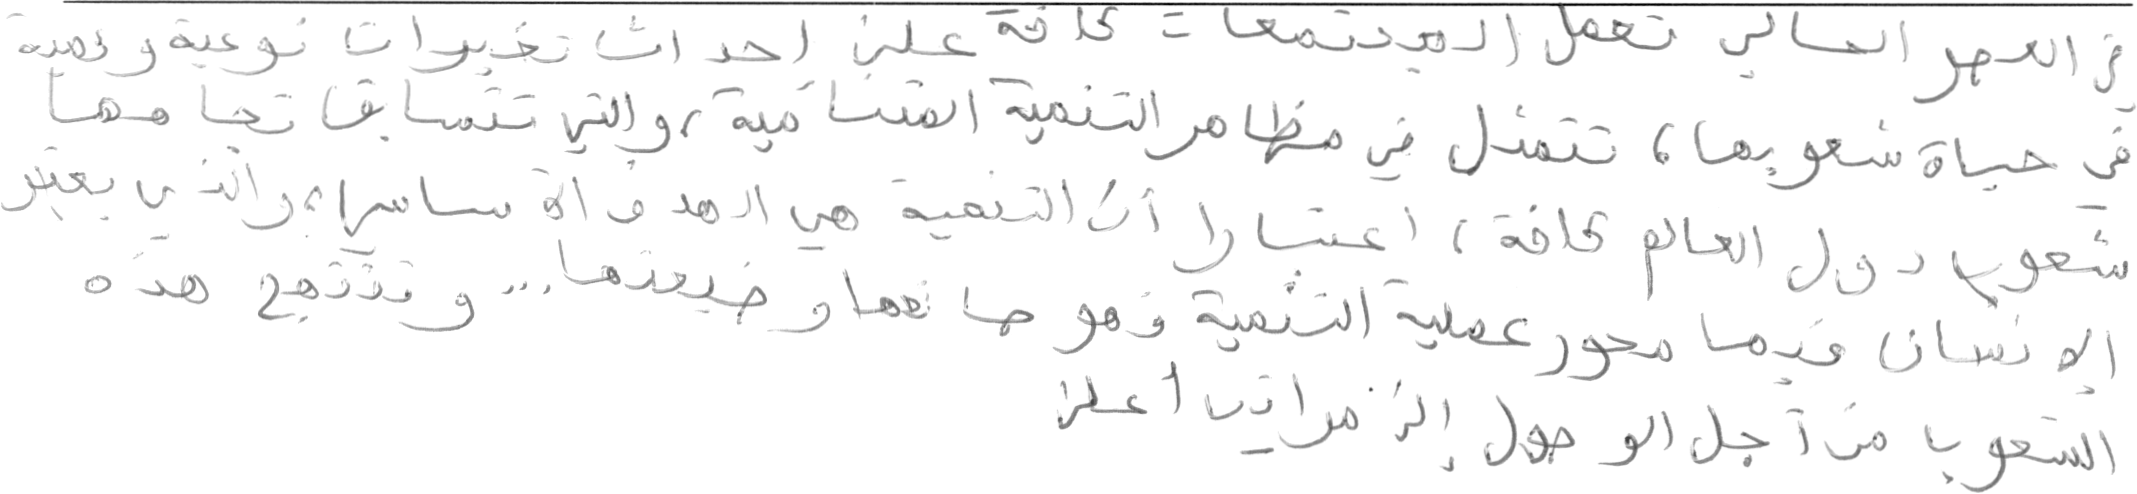 في العصر الحالي تعمل المجتمعات كافة على احداث تغيرات نوعية وكمية
في حياة شعوبها، تتمثل في مظاهر التنمية المتنامية، والتي تتسابق تجاهها
شعوب دول العالم كافة، اعتبارا أن التنمية هي الهدف الأساسي، والذي يعتبر
الإنسان فيها محور عملية التنمية فهو صانعها وضيعتها... وتنتهج هذه
الشعوب من أجل الوصول إلى مراتب أعلى